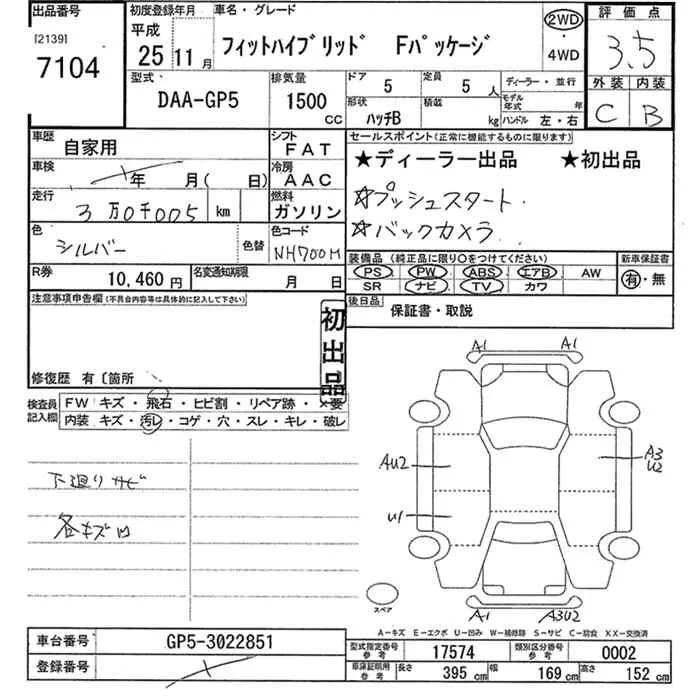 出品番号
[2139]
7104
初度登録年月
平成
25 11月
車名・グレード
フィットハイブリッド Fパッケージ
2WD
・
4WD
評価点
3.5
外装 内装
C B
型式
DAA-GP5
排気量
1500 CC
ドア
5
定員
5人
ディーラー・並行
形状
ハッチB
積載
kg
モデル年式 年
ハンドル 左・右
車歴
自家用
シフト
FAT
車検
年 月( 日)
冷房
AAC
走行
3万0千005 km
燃料
ガソリン
色
シルバー
色替
色コード
NH700M
R券
10,460円
名変通知期限
月 日
セールスポイント(正常に機能するものに限ります)
★ディーラー出品 ★初出品
☆プッシュスタート.
☆バックカメラ
装備品 (純正品に限り○をつけてください)
PS PW ABS エアB AW
SR ナビ TV カワ
新車保証書
有・無
後日品
保証書・取説
注意事項申告欄(不具合内容等は具体的に記入して下さい)
初出品
修復歴 有〔箇所
検査員記入欄
FW キズ・飛石・ヒビ割・リペア跡・×要
内装 キズ・汚レ・コゲ・穴・スレ・キレ・破レ
下廻りサビ
各キズ凹
A1 A1
AU2
A3
U2
U1
A1 A3U2
スペア
A－キズ E－エクボ U－凹み W－補修跡 S－サビ C－腐食 XX－交換済
車台番号
GP5-3022851
登録番号
型式指定番号 参考
17574
類別区分番号 参考
0002
車庫証明用 参考
長さ 395 cm
幅 169 cm
高さ 152 cm